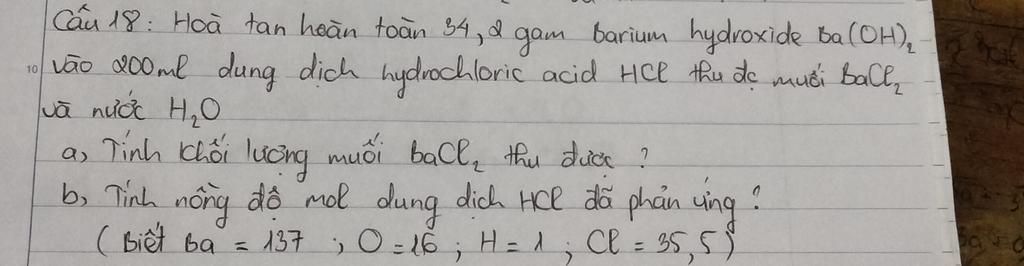 Câu 18: Hoà tan hoàn toàn 34,2 gam barium hydroxide Ba(OH)₂
10 vào 200ml dung dịch hydrochloric acid HCl thu đc muối baCl₂
và nước H₂O
a, Tính khối lượng muối baCl₂ thu được ?
b, Tính nồng độ mol dung dịch HCl đã phản ứng ?
( Biết Ba = 137 ; O = 16 ; H = 1 ; Cl = 35,5 )